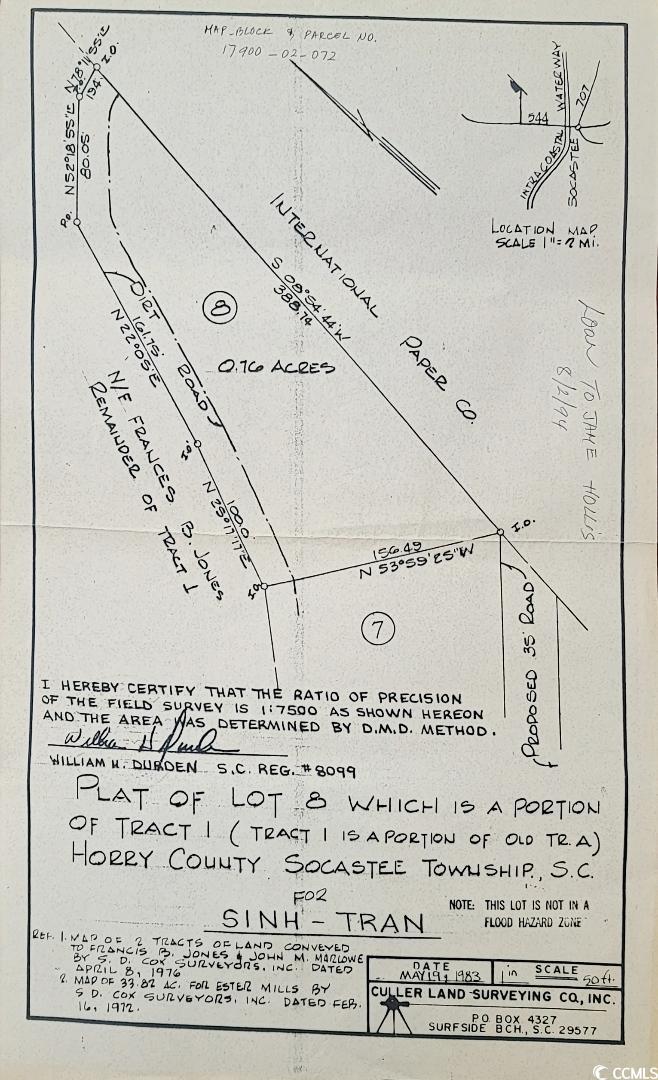 MAP-BLOCK & PARCEL NO.
17900-02-072
N78°11'55"E
19.4'
I.O.
N52°18'55"E
80.05'
Po.
544
WATERWAY
707
INTRACOASTAL
SOCASTEE
LOCATION MAP
SCALE 1"=2 MI.
INTERNATIONAL
PAPER CO.
S 08°54'44"W
388.74
8
0.76 ACRES
DIRT
ROAD
161.75
N 22°05'E
N/F FRANCES B. JONES
REMAINDER OF TRACT 1
100.0
N 25°17'17"E
LOAN TO JAME HOLLIS
8/2/94
I.O.
156.49
N 53°59'25"W
7
PROPOSED 35' ROAD
I HEREBY CERTIFY THAT THE RATIO OF PRECISION
OF THE FIELD SURVEY IS 1:7500 AS SHOWN HEREON
AND THE AREA WAS DETERMINED BY D.M.D. METHOD.
William H Durden
WILLIAM H. DURDEN S.C. REG. #8099
PLAT OF LOT 8 WHICH IS A PORTION
OF TRACT 1 (TRACT 1 IS A PORTION OF OLD TR. A)
HORRY COUNTY SOCASTEE TOWNSHIP, S.C.
FOR
SINH-TRAN
NOTE: THIS LOT IS NOT IN A
FLOOD HAZARD ZONE
REF. 1. MAP OF 2 TRACTS OF LAND CONVEYED
TO FRANCIS B. JONES & JOHN M. MARLOWE
BY S. D. COX SURVEYORS, INC. DATED
APRIL 8, 1976
2. MAP OF 33.82 AC. FOR ESTER MILLS BY
S D. COX SURVEYORS, INC. DATED FEB.
16, 1972.
DATE
MAY 19, 1983
1 in SCALE 50 ft.
CULLER LAND SURVEYING CO., INC.
P.O. BOX 4327
SURFSIDE BCH., S.C. 29577
CCMLS